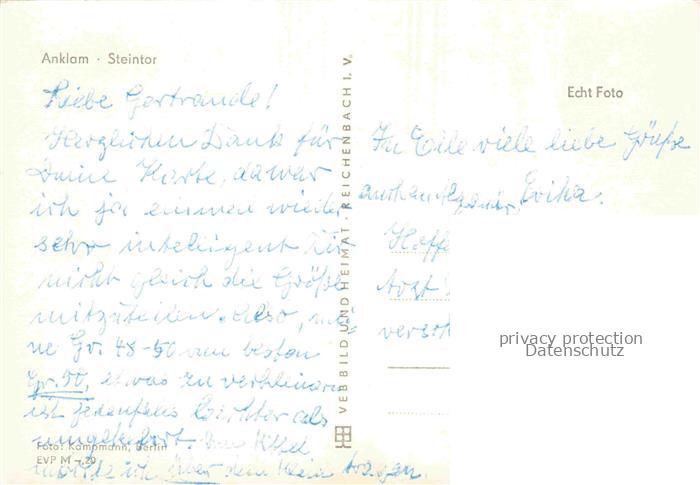 Anklam · Steintor
Echt Foto
Liebe Gertraude!
Herzlichen Dank für
Deine Karte, da war
ich ja einmal wieder
sehr intelligent Dir
nicht gleich die Größe
mitzuteilen. Also, mei=
ne Gr. 48-50 am besten
Gr. 50, etwas zu verkleinern
ist jedenfalls leichter als
umgekehrt. Den Kittel
möchte ich über dem Kleid tragen.
In Eile viele liebe Grüße
auch an Evika.
Foto: Kampmann, Berlin
EVP M -,20
VEB BILD UND HEIMAT · REICHENBACH I. V.
privacy protection
Datenschutz